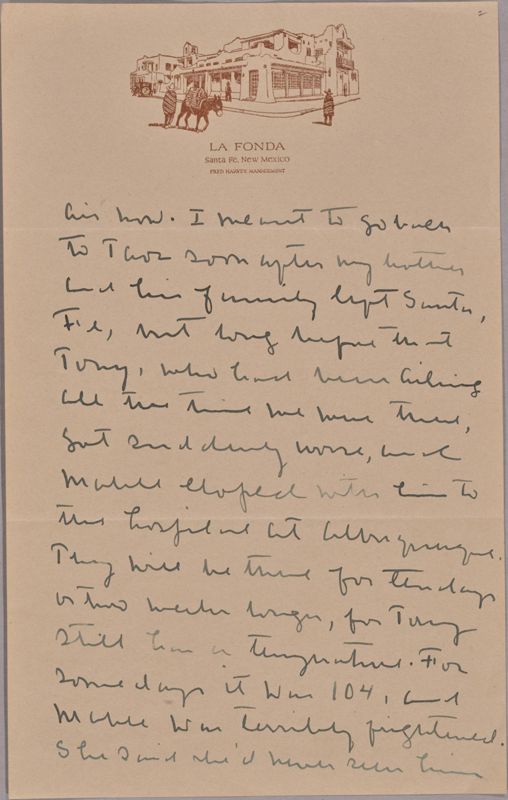 LA FONDA
Santa Fe, New Mexico
FRED HARVEY MANAGEMENT
his now. I meant to go back
to Taos soon after my brother
and his family left Santa
Fé, but long before that
Tony, who had been ailing
all the time we were there,
got suddenly worse, and
Mabel eloped with him to
the hospital at Albuquerque.
They will be there for ten days
or two weeks longer, for Tony
still has a temperature. For
some days it was 104, and
Mabel was terribly frightened.
She said she'd never seen him